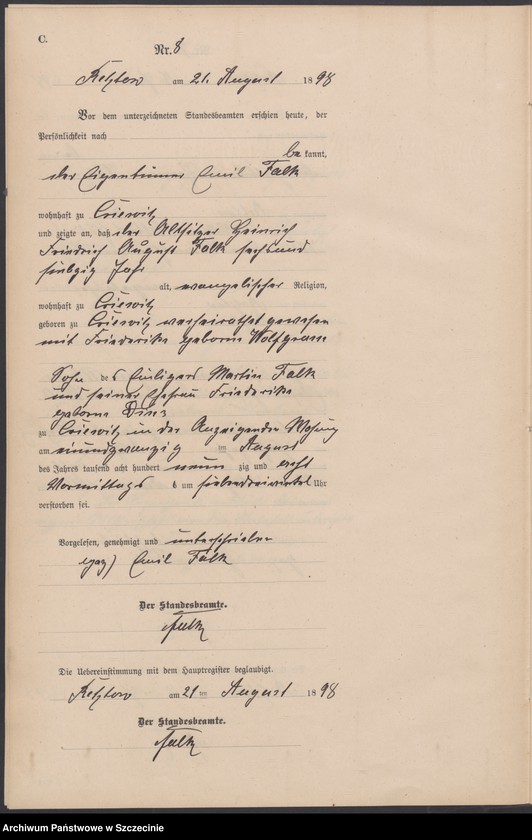 C.
Nr. 8
am 21 August 1898
Vor dem unterzeichneten Standesbeamten erschien heute, der
Persönlichkeit nach
be kannt,
der Eigentümer Emil Falk
wohnhaft zu Criewitz
und zeigte an, daß der Altsitzer Heinrich
Friedrich August Falk sechsund
siebzig Jahr
alt, evangelischer Religion,
wohnhaft zu Criewitz
geboren zu Criewitz verheirathet gewesen
mit Friederike geborne Wolfgram
Sohn des Martin Falk
und seiner Ehefrau Friederike
geborne
zu Criewitz in des Anzeigenden
am einundzwanzig ten August
des Jahres tausend acht hundert neun zig und acht
Vormittags um Uhr
verstorben sei.
Vorgelesen, genehmigt und unterschrieben
gez) Emil Falk
Der Standesbeamte.
Falk
Die Uebereinstimmung mit dem Hauptregister beglaubigt.
am 21 ten August 1898
Der Standesbeamte.
Falk
Archiwum Państwowe w Szczecinie